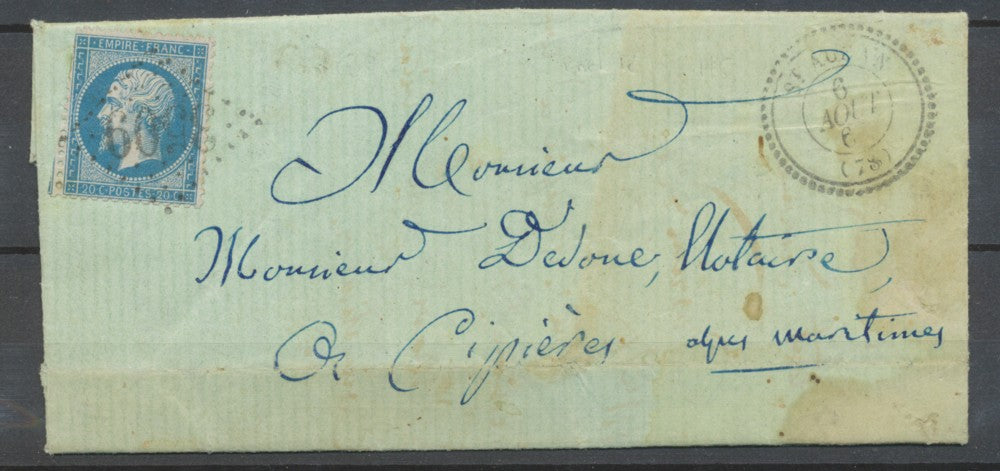 EMPIRE FRANC
60
20 C·POSTES·20 C
6
AOUT
6
(78)
Monsieur
Monsieur Devoue, Notaire,
à Cipières alpes maritimes